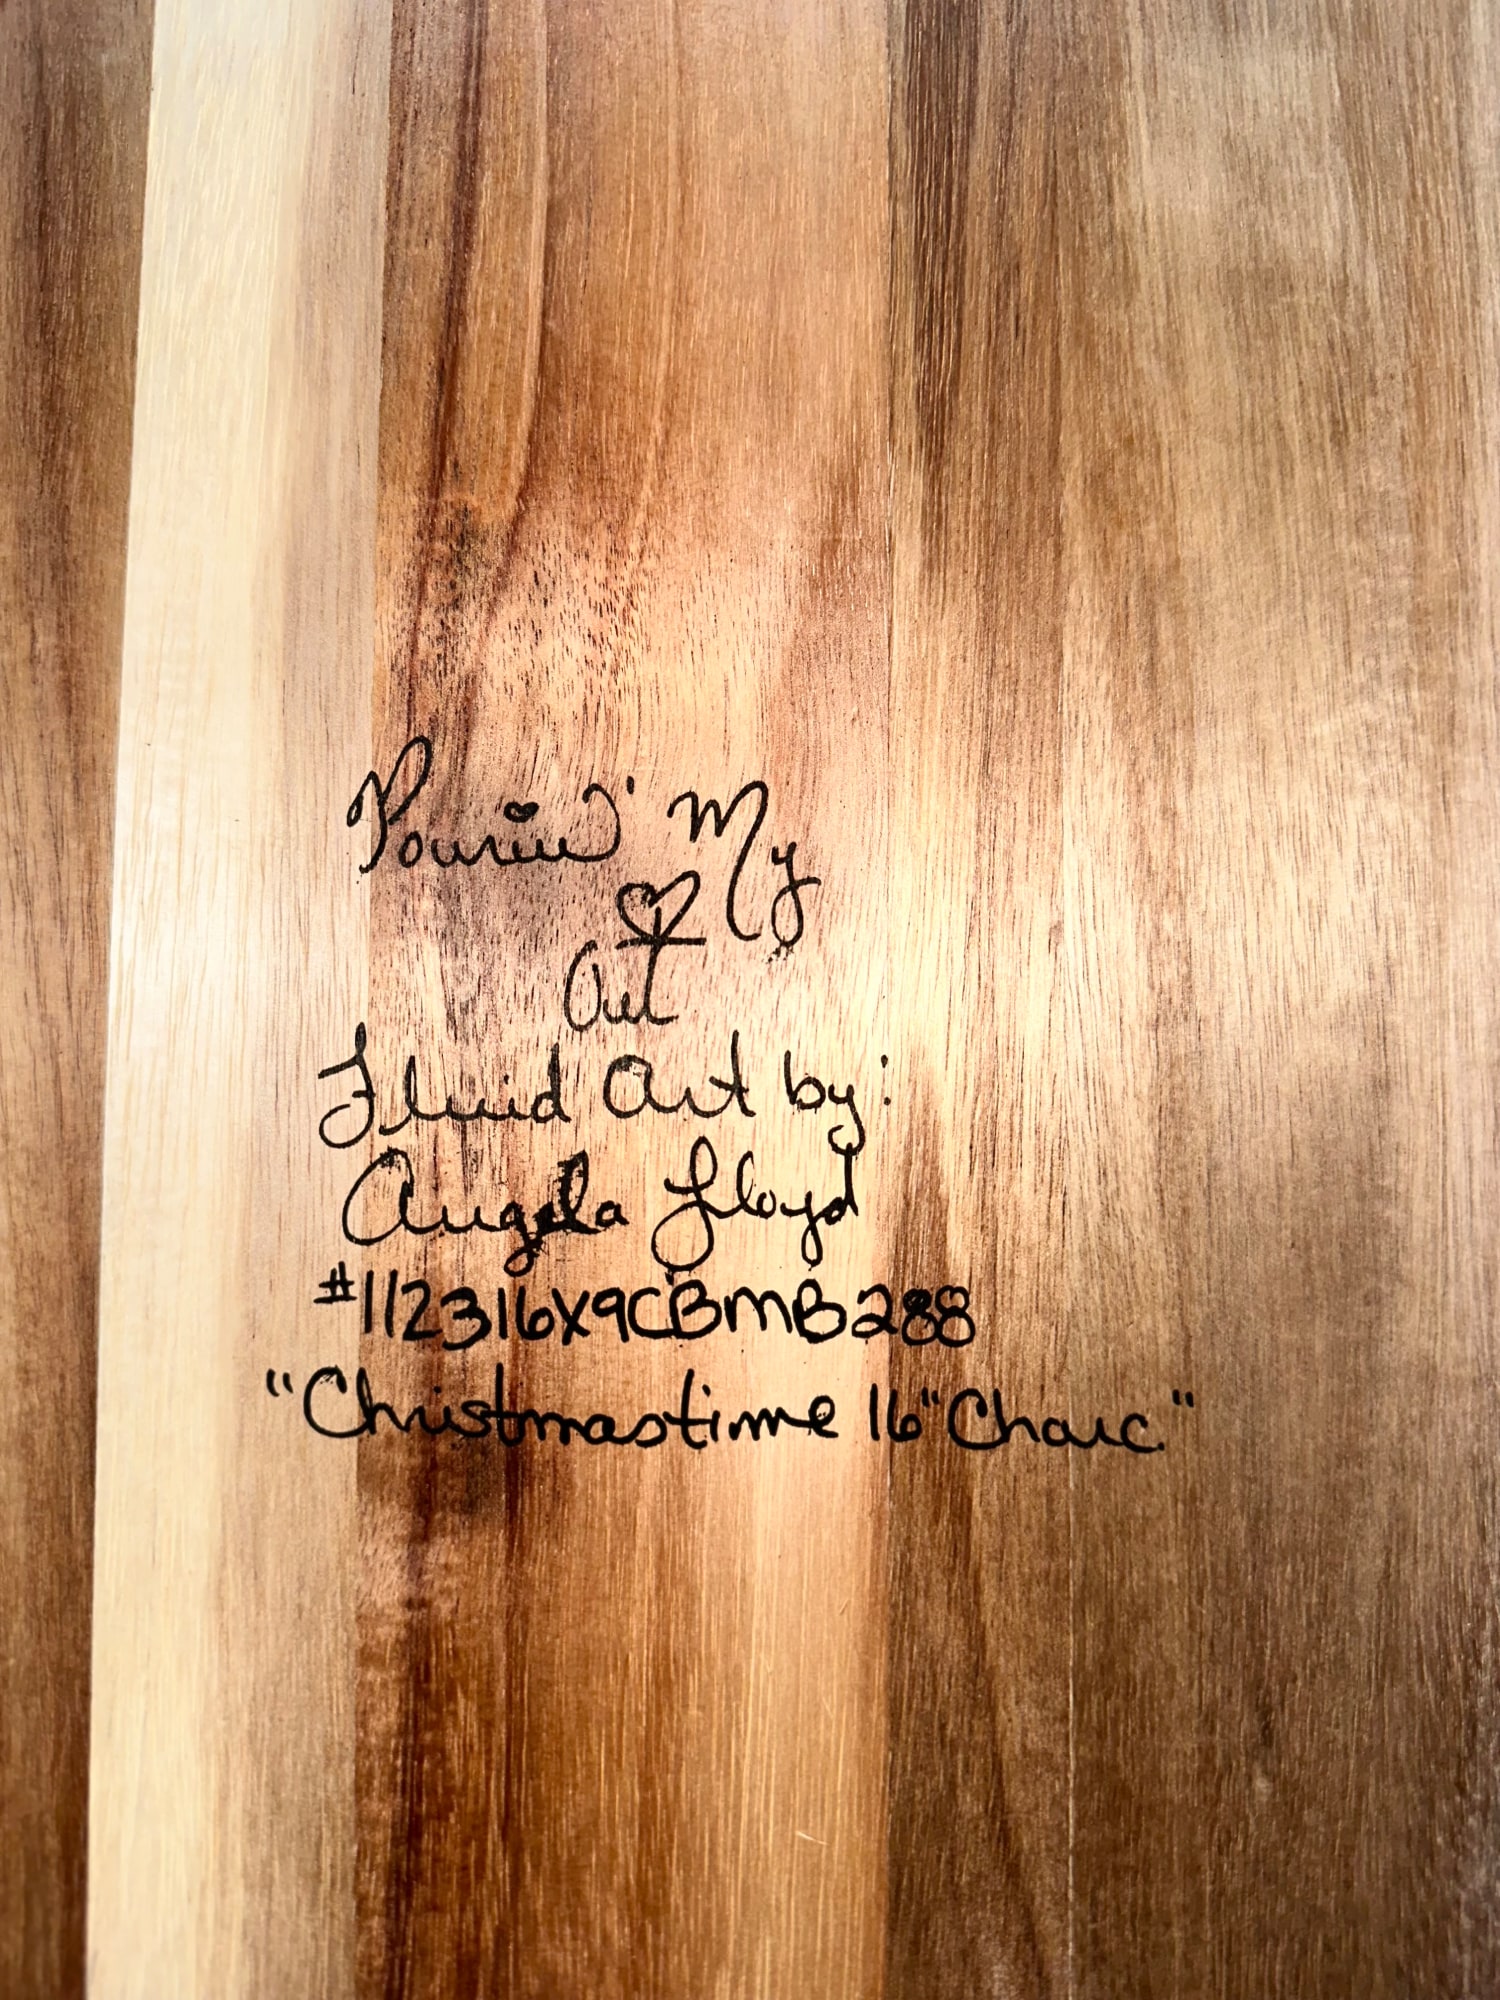 Pourin' My
♡
Out
Fluid Art by:
Angela Lloyd
#112316X9CBMB288
"Christmastime 16" Charc."